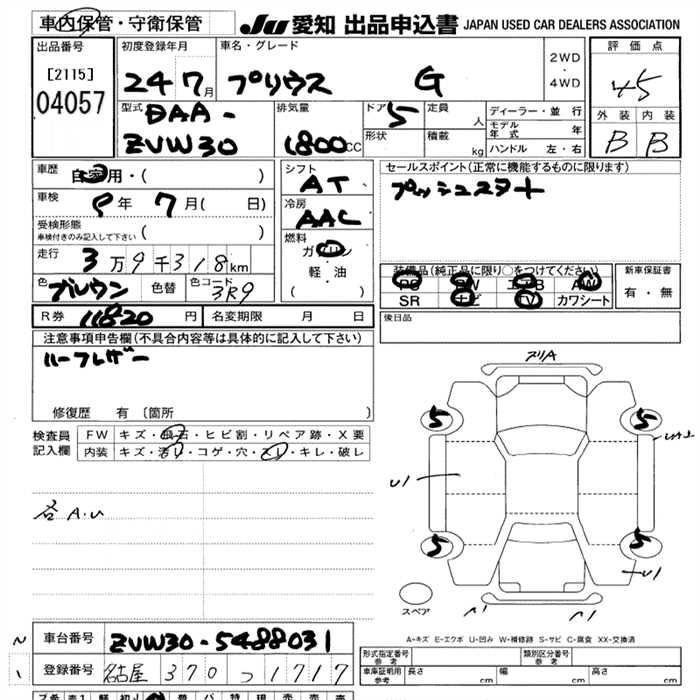 車内保管・守衛保管
JU 愛知 出品申込書 JAPAN USED CAR DEALERS ASSOCIATION
出品番号 初度登録年月 車名・グレード 2WD・4WD 評価点
[2115] 04057
24 7月 プリウス G
4.5
型式 DAA-ZVW30
排気量 1800CC
ドア 5 形状
定員 人 積載 kg
ディーラー・並行
モデル年式 年
ハンドル 左・右
外装 内装
B B
車歴 自家用・( )
シフト AT
セールスポイント(正常に機能するものに限ります)
プッシュスタート
車検 9年 7月( 日)
冷房 AAC
受検形態 車検付きのみ記入して下さい ( )
燃料 ガソリン 軽・油 ( )
走行 3万9千318km
色 ブラウン 色替 色コード 3R9
装備品(純正品に限り○をつけてください) 新車保証書
PS PW エアB AW
SR ナビ TV カワシート 有・無
R券 11820円 名変期限 月 日 後日品
注意事項申告欄(不具合内容等は具体的に記入して下さい)
ハーフレザー
修復歴 有 〔箇所 〕
検査員記入欄
FW キズ・飛石・ヒビ割・リペア跡・X要
内装 キズ・汚レ・コゲ・穴・スレ・キレ・破レ
各A.U
プリA
5 5
UA2
U1
5 5
U1
スペア
A-キズ E-エクボ U-凹み W-補修跡 S-サビ C-腐食 XX-交換済
車台番号 ZVW30-5488031
登録番号 名古屋 370 つ1717
形式指定番号 参考 類別区分番号 参考
車庫証明用 参考 長さ 幅 高さ